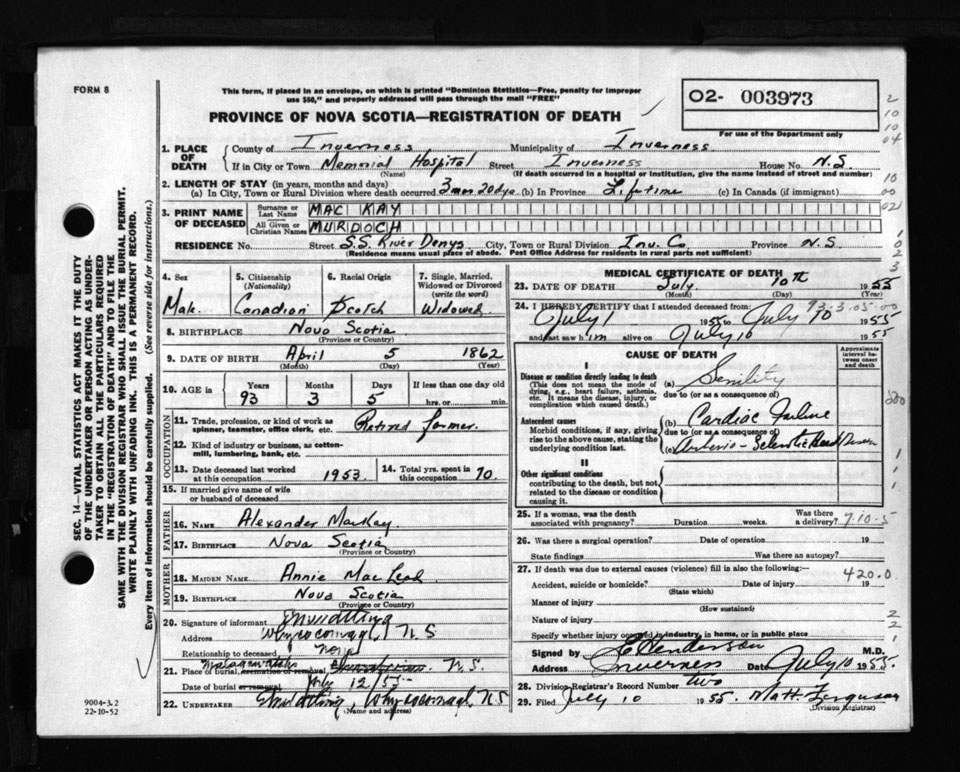 FORM 8
This form, if placed in an envelope, on which is printed "Dominion Statistics—Free, penalty for improper
use $50," and properly addressed will pass through the mail "FREE"
O2- 003973
PROVINCE OF NOVA SCOTIA—REGISTRATION OF DEATH
For use of the Department only
1. PLACE OF DEATH
County of Inverness Municipality of Inverness
If in City or Town Memorial Hospital Street Inverness House No. N.S.
(Name) (If death occurred in a hospital or institution, give the name instead of street and number)
2. LENGTH OF STAY (in years, months and days)
(a) In City, Town or Rural Division where death occurred 3 mos 20 dys (b) In Province Lifetime (c) In Canada (if immigrant)
3. PRINT NAME OF DECEASED
Surname or Last Name MAC KAY
All Given or Christian Names MURDOCH
RESIDENCE No. Street S.S. River Denys City, Town or Rural Division Inv. Co Province N.S.
(Residence means usual place of abode. Post Office Address for residents in rural parts not sufficient)
4. Sex Male
5. Citizenship (Nationality) Canadian
6. Racial Origin Scotch
7. Single, Married, Widowed or Divorced (write the word) Widowed
8. BIRTHPLACE Nova Scotia
(Province or Country)
9. DATE OF BIRTH April 5 1862
(Month) (Day) (Year)
10. AGE in Years Months Days If less than one day old
93 3 5 hrs. or min.
OCCUPATION
11. Trade, profession, or kind of work as
spinner, teamster, office clerk, etc. Retired farmer
12. Kind of industry or business, as cotton-
mill, lumbering, bank, etc.
13. Date deceased last worked
at this occupation 1953
14. Total yrs. spent in
this occupation 70
15. If married give name of wife
or husband of deceased
FATHER
16. NAME Alexander MacKay
17. BIRTHPLACE Nova Scotia
(Province or Country)
MOTHER
18. MAIDEN NAME Annie MacLeod
19. BIRTHPLACE Nova Scotia
(Province or Country)
20. Signature of informant
Address Whycocomagh, N S
Relationship to deceased None
21. Place of burial, cremation or removal N.S.
Date of burial or removal July 12/55
22. UNDERTAKER Whycocomagh, N.S
(Name and Address)
MEDICAL CERTIFICATE OF DEATH
23. DATE OF DEATH July 10th 1955
(Month) (Day) (Year)
93-3-05-00
24. I HEREBY CERTIFY that I attended deceased from:
July 1 1955 to July 10 1955
and last saw him alive on July 10 1955
CAUSE OF DEATH
Approximate interval between onset and death
I
Disease or condition directly leading to death
(This does not mean the mode of
dying, e.g., heart failure, asthenia,
etc. It means the disease, injury, or
complication which caused death.)
(a) Senility
due to (or as a consequence of)
Antecedent causes
Morbid conditions, if any, giving
rise to the above cause, stating the
underlying condition last.
(b) Cardiac Failure
due to (or as a consequence of)
(c) Arterio-Sclerotic Heart Disease
II
Other significant conditions
contributing to the death, but not
related to the disease or condition
causing it.
25. If a woman, was the death
associated with pregnancy? Duration weeks. Was there a delivery?
7-10-5
26. Was there a surgical operation? Date of operation 19
State findings Was there an autopsy?
27. If death was due to external causes (violence) fill in also the following:
420.0
Accident, suicide or homicide? Date of injury 19
(State which)
Manner of injury
(How sustained)
Nature of injury
Specify whether injury occurred in industry, in home, or in public place
Signed by Henderson M.D.
Address Inverness Date July 10 1955.
28. Division Registrar's Record Number two
29. Filed July 10 1955. Matt Ferguson
(Division Registrar)
SEC. 14—VITAL STATISTICS ACT MAKES IT THE DUTY
OF THE UNDERTAKER OR PERSON ACTING AS UNDER-
TAKER TO OBTAIN ALL THE PARTICULARS REQUIRED
IN THE "REGISTRATION OF DEATH" AND TO FILE IT
WITH THE DIVISION REGISTRAR WHO SHALL ISSUE THE BURIAL PERMIT.
WRITE PLAINLY WITH UNFADING INK. THIS IS A PERMANENT RECORD.
Every item of information should be carefully supplied. (See reverse side for instructions.)
9004-3.2
22-10-52